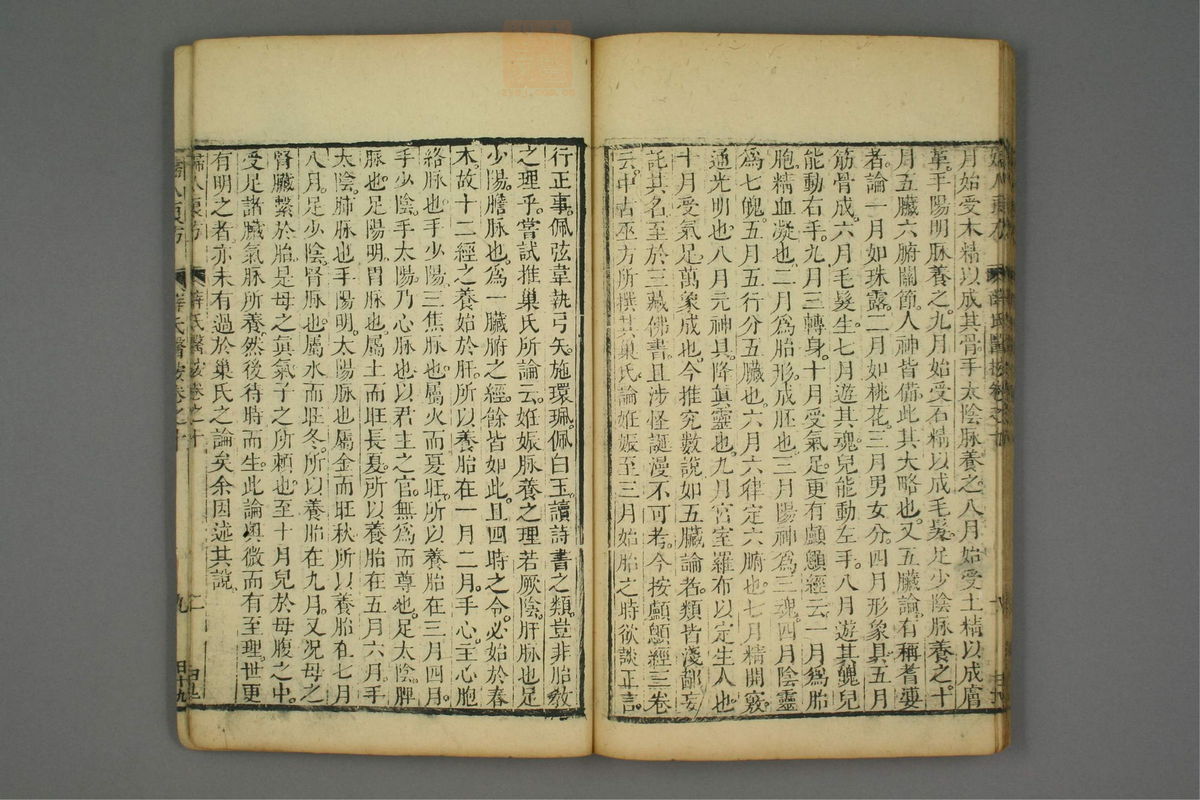 月始受木精以成其骨手太陰脉養之八月始受土精以成膚
革手陽明脉養之九月始受石精以成毛髮足少陰脉養之十
月五臟六腑關節人神皆備此其大略也又五臟論有稱耆婆
者論一月如珠露二月如桃花三月男女分四月形象具五月
筋骨成六月毛髮生七月遊其魂兒能動左手八月遊其魄兒
能動右手九月三轉身十月受氣足更有顱顖經云一月爲胎
胞精血凝也二月爲胎形成胚也三月陽神爲三魂四月陰靈
爲七魄五月五行分五臟也六月六律定六腑也七月精開竅
通光明也八月元神具降眞靈也九月宮室羅布以定生人也
十月受氣足萬象成也今推究數說如五臟論者類皆淺鄙妄
託其名至於三藏佛書且涉怪誕漫不可考今按顱顖經三卷
云中古巫方所撰其巢氏論姙娠至三月始胎之時欲談正言
行正事佩弦韋執弓矢施環珮佩白玉讀詩書之類豈非胎教
之理乎嘗試推巢氏所論云姙娠脉養之理若厥陰肝脉也足
少陽膽脉也爲一臟腑之經餘皆如此且四時之令必始於春
木故十二經之養始於肝所以養胎在一月二月手心主心胞
絡脉也手少陽三焦脉也屬火而夏旺所以養胎在三月四月
手少陰手太陽乃心脉也以君主之官無爲而尊也足太陰脾
脉也足陽明胃脉也屬土而旺長夏所以養胎在五月六月手
太陰肺脉也手陽明太陽脉也屬金而旺秋所以養胎在七月
八月足少陰腎脉也屬水而旺冬所以養胎在九月又况母之
腎臟繫於胎是母之眞氣子之所頼也至十月兒於母腹之中
受足諸臟氣脉所養然後待時而生此論奥微而有至理世更
有明之者亦未有過於巢氏之論矣余因述其說
婦人良方 薛氏醫按卷之十 九